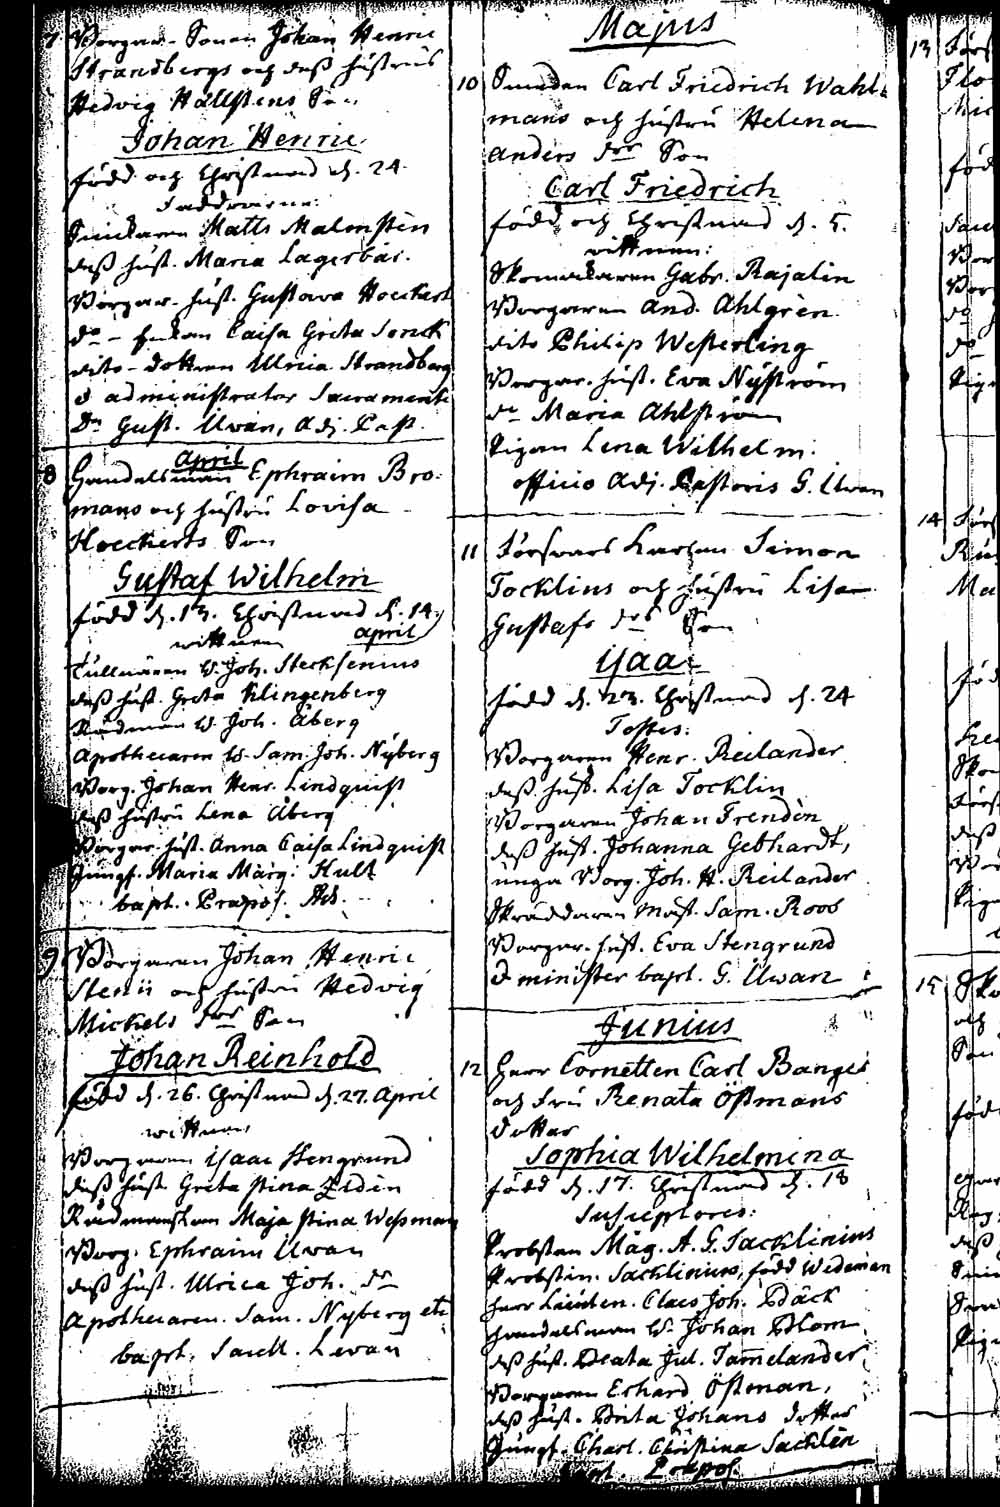 7 Borgar-Sonen Johan Henric
Strandbergs och dess hustrus
Hedvig Hallstens Son
Johan Henric
född och Christnad d. 24.
Faddrarne:
Snickaren Matts Malmsten
dess hust. Maria Lagerbär.
Borgar-hust. Gustava Hoeckert
do - Enkan Caisa Greta Sonck
dito-dottren Ulrica Strandberg
administrator Sacramenti
Dn Gust. Uwan, Adj. Past.
8 April
Handelsman Ephraim Bro-
mans och hustru Lovisa
Hoeckerts Son
Gustaf Wilhelm
född d. 13. Christnad d. 14.
wittnen april
Tullnären H. Joh. Stecksenius
dess hust. Greta Klingenberg
Rådman H. Joh. Åberg
Apothecaren H. Sam. Joh. Nyberg
Borg. Johan Henr. Lindquist
dess hustru Lena Åberg
Borgar-hust. Anna Caisa Lindquist
Jungf. Maria Marg. Hult
bapt. Præpos.
9 Borgaren Johan Henric
Stenii och hustru Hedvig
Mickels dor Son
Johan Reinhold
född d. 26. Christnad d. 27. April
wittnen
Borgaren Isaac Stengrund
dess hust. Greta Stina Zidén
Rådmanskan Maja Stina Wessman
Borg. Ephraim Uwan
dess hust. Ulrica Joh. dr
Apothecaren Sam. Nyberg etc
bapt. Sacell. Levan
Majus
10 Smeden Carl Friedrich Wahl-
mans och hustru Helena
Anders dors Son
Carl Friedrich
född och Christnad d. 5.
wittnen:
Skomakaren Gabr. Rajalin
Borgaren And. Ahlgren
dito Philip Westerling
Borgar-hust. Eva Nyström
do Maria Ahlström
Pigan Lena Wilhelm.
officio Adj. Pastoris G. Uwan
11 Försvars Karlen Simon
Tocklins och hustru Lisa
Gustafs dors Son
Isaac
född d. 23. Christnad d. 24
Testes:
Borgaren Henr. Reilander
dess hust. Lisa Tocklin
Borgaren Johan Trendén
dess hust. Johanna Gebhardt,
unga Borg. Joh. H. Reilander
Skräddaren Mäst. Sam. Roos
Borgar-hust. Eva Stengrund
minister bapt. G. Uwan
Junius
12 Herr Cornetten Carl Banges
och Fru Renata Östmans
dotter
Sophia Wilhelmina
född d. 17. Christnad d. 18
Susceptores:
Probsten Mag. A. G. Sacklinius
Probstin. Sacklinius, född Wideman
herr Lieuten. Claes Joh. Bäck
handelsman H. Johan Blom
dess hust. Beata Jul. Tammelander
Borgaren Erhard Östman,
dess hust. Brita Johans dotter
Jungf. Charl. Christina Sacklén
Præpos.
13
född
14
15
född